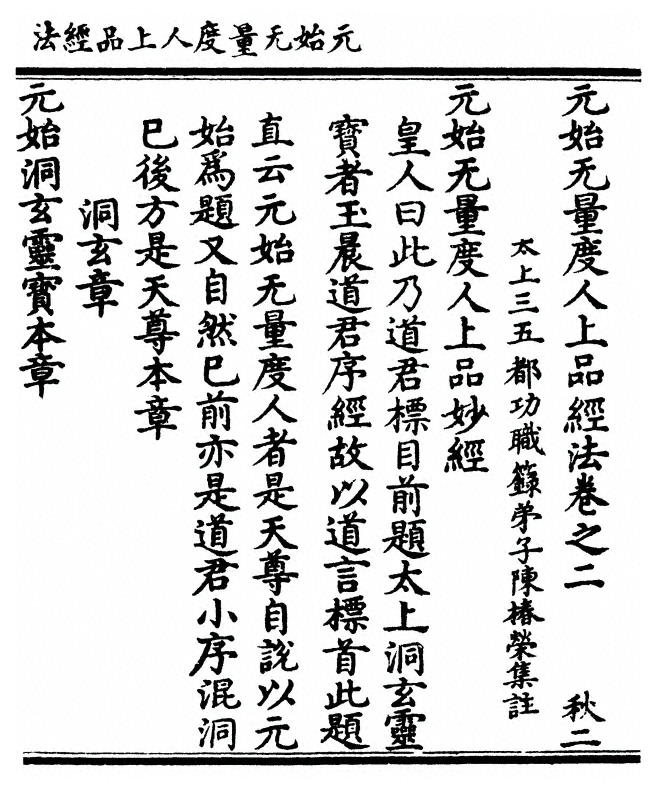 元始无量度人上品經法
元始无量度人上品經法卷之二 秋二
太上三五都功職籙弟子陳椿榮集註
元始无量度人上品妙經
皇人曰此乃道君標目前題太上洞玄靈
寶者玉晨道君序經故以道言標首此題
直云元始无量度人者是天尊自說以元
始爲題又自然巳前亦是道君小序混洞
巳後方是天尊本章
洞玄章
元始洞玄靈寶本章